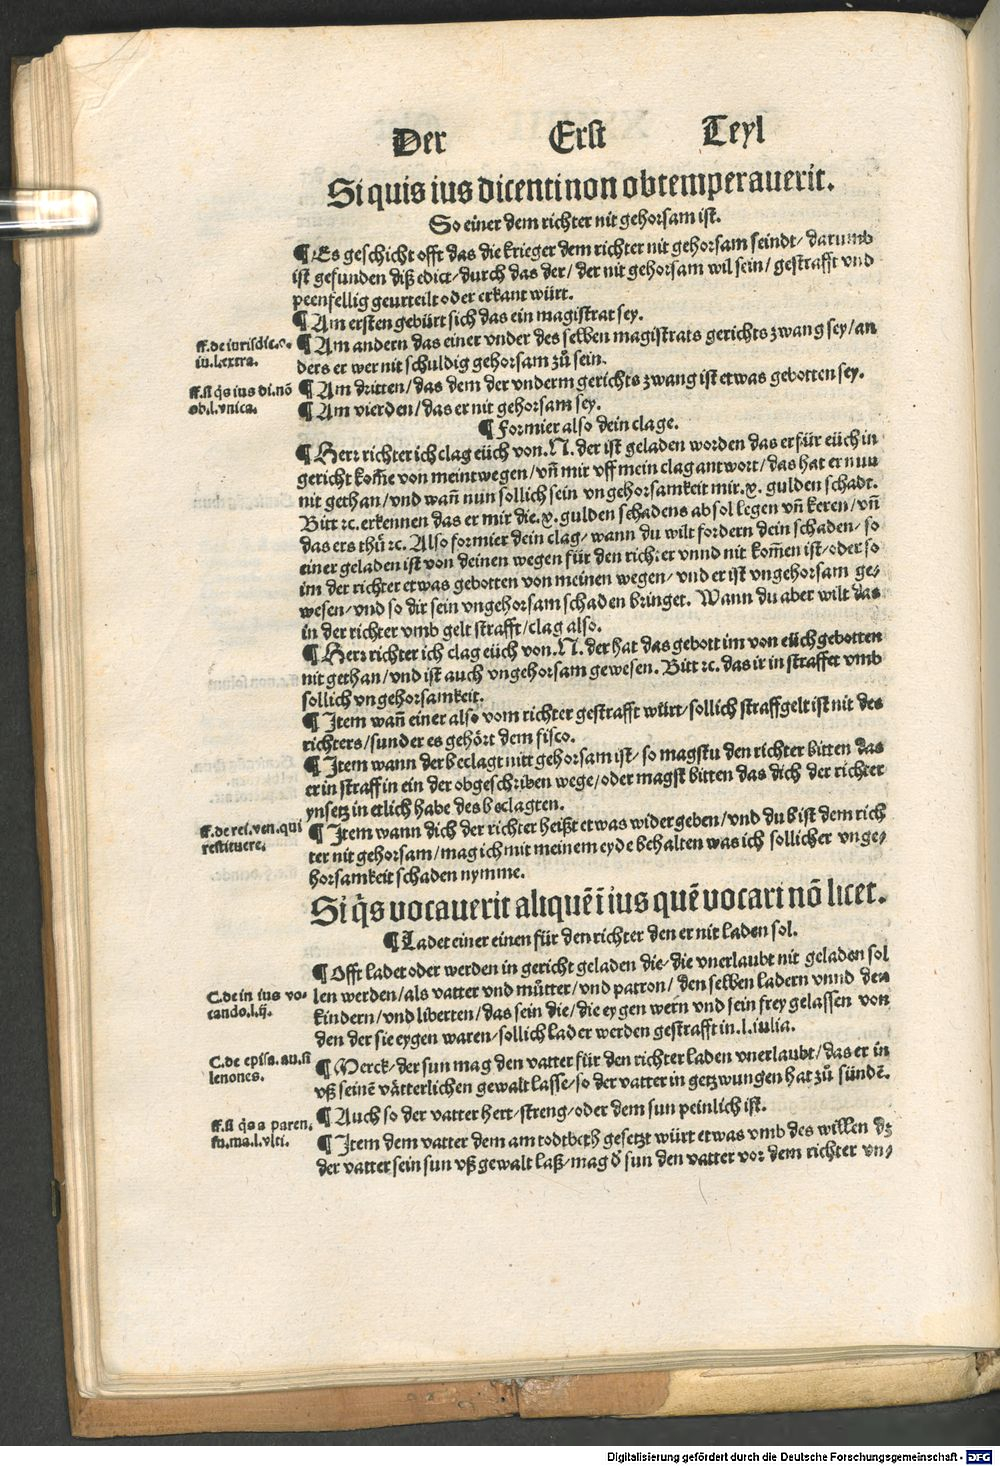 Der Erst Teyl
Si quis ius dicenti non obtemperauerit.
So einer dem richter nit gehorsam ist.
¶ Es geschicht offt das die krieger dem richter nit gehorsam seindt/ darumb
ist gefunden diß edict/ durch das der/ der nit gehorsam wil sein/ gestrafft vnd
peenfellig geurteilt oder erkant würt.
¶ Am ersten gebürt sich das ein magistrat sey.
ff. de iurisdic. o.
iu. l. extra.
¶ Am andern das einer vnder des selben magistrats gerichts zwang sey/ an
ders er wer nit schuldig gehorsam zů sein.
ff. si q̃s ius di. nõ
ob. l. vnica.
¶ Am dritten/ das dem der vnderm gerichts zwang ist etwas gebotten sey.
¶ Am vierden/ das er nit gehorsam sey.
¶ Formier also dein clage.
¶ Herr richter ich clag eüch von. N. der ist geladen worden das er für eüch in
gericht kom̃e von meint wegen/ vñ mir vff mein clag antwort/ das hat er nun
nit gethan/ vnd wañ nun sollich sein vngehorsamkeit mir. x. gulden schadt.
Bitt ⁊c. erkennen das er mir die. x. gulden schadens ab sol legen vñ keren/ vñ
das ers thů ⁊c. Also formier dein clag/ wann du wilt fordern dein schaden/ so
einer geladen ist von deinen wegen für den richter vnnd nit kom̃en ist/ oder so
im der richter etwas gebotten von meinen wegen/ vnd er ist vngehorsam ge⸗
wesen/ vnd so dir sein vngehorsam schaden bringet. Wann du aber wilt das
in der richter vmb gelt strafft/ clag also.
¶ Herr richter ich clag eüch von. N. der hat das gebott im von eüch gebotten
nit gethan/ vnd ist auch vngehorsam gewesen. Bitt ⁊c. das ir in straffet vmb
sollich vngehorsamkeit.
¶ Item wañ einer also vom richter gestrafft würt/ sollich straffgelt ist nit des
richters/ sunder es gehört dem fisco.
¶ Item wann der beclagt nitt gehorsam ist/ so magstu den richter bitten das
er in straff in ein der obgeschriben wege/ oder magst bitten das dich der richter
ynsetz in etlich habe des beclagten.
ff. de rei. ven. qui
restituere.
¶ Item wann dich der richter heißt etwas widergeben/ vnd du bist dem rich
ter nit gehorsam/ mag ich mit meinem eyde behalten was ich sollicher vnge⸗
horsamkeit schaden nymme.
Si q̃s uocauerit aliquẽ ĩ ius quẽ uocari nõ licet.
¶ Ladet einer einen für den richter den er nit laden sol.
¶ Offt ladet oder werden in gericht geladen die/ die vnerlaubt nit geladen sol
C. de in ius vo⸗
cando. l. ij.
len werden/ als vatter vnd můtter/ vnd patron/ den selben ladern vnnd den
kindern/ vnd liberten/ das sein die/ die eygen wern vnd sein frey gelassen von
den der sie eygen waren/ sollich lader werden gestrafft in. l. iulia.
C. de episa. au. si
lenones.
¶ Merck/ der sun mag den vatter für den richter laden vnerlaubt/ das er in
vß seinẽ vätterlichen gewalt lasse/ so der vatter in getzwungen hat zů sündẽ.
¶ Auch so der vatter hert/ streng/ oder dem sun peinlich ist.
ff. si q̃s a paren.
fu. ma. l. vlti.
¶ Item dem vatter dem am todtbeth gesetzt würt etwas vmb des willen dz
der vatter sein sun vß gewalt laß/ mag d̾ sun den vatter vor dem richter vn⸗
Digitalisierung gefördert durch die Deutsche Forschungsgemeinschaft - DFG